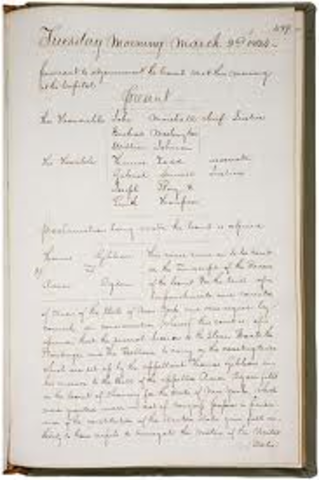 Tuesday Morning March 2d 1824
Pursuant to adjournment the Court met this morning
at the Capitol.
Present
The Honorable John Marshall Chief Justice
Bushrod Washington
William Johnson
The Honble Thomas Todd associate
Gabriel Duvall Justices
Joseph Story &
Smith Thompson
Proclamation being made the Court is opened
Thomas Gibbons This cause came on to be heard
vs on the Transcript of the Record
Aaron Ogden of the Court for the trial of
Impeachments and correction
of Errors of the State of New York and was argued by
counsel, on consideration whereof this court is of
opinion, that the several licenses to the Steam Boats the
Stoudinger and the Bellona to carry on the coasting trade
which are set up by the appellant Thomas Gibbons in
his answer to the Bill of the appellee Aaron Ogden filed
in the Court of Chancery for the State of New York, which
were granted under an act of Congress, passed in pursu-
ance of the constitution of the United States gave full au-
thority to those vessels to navigate the waters of the United
States